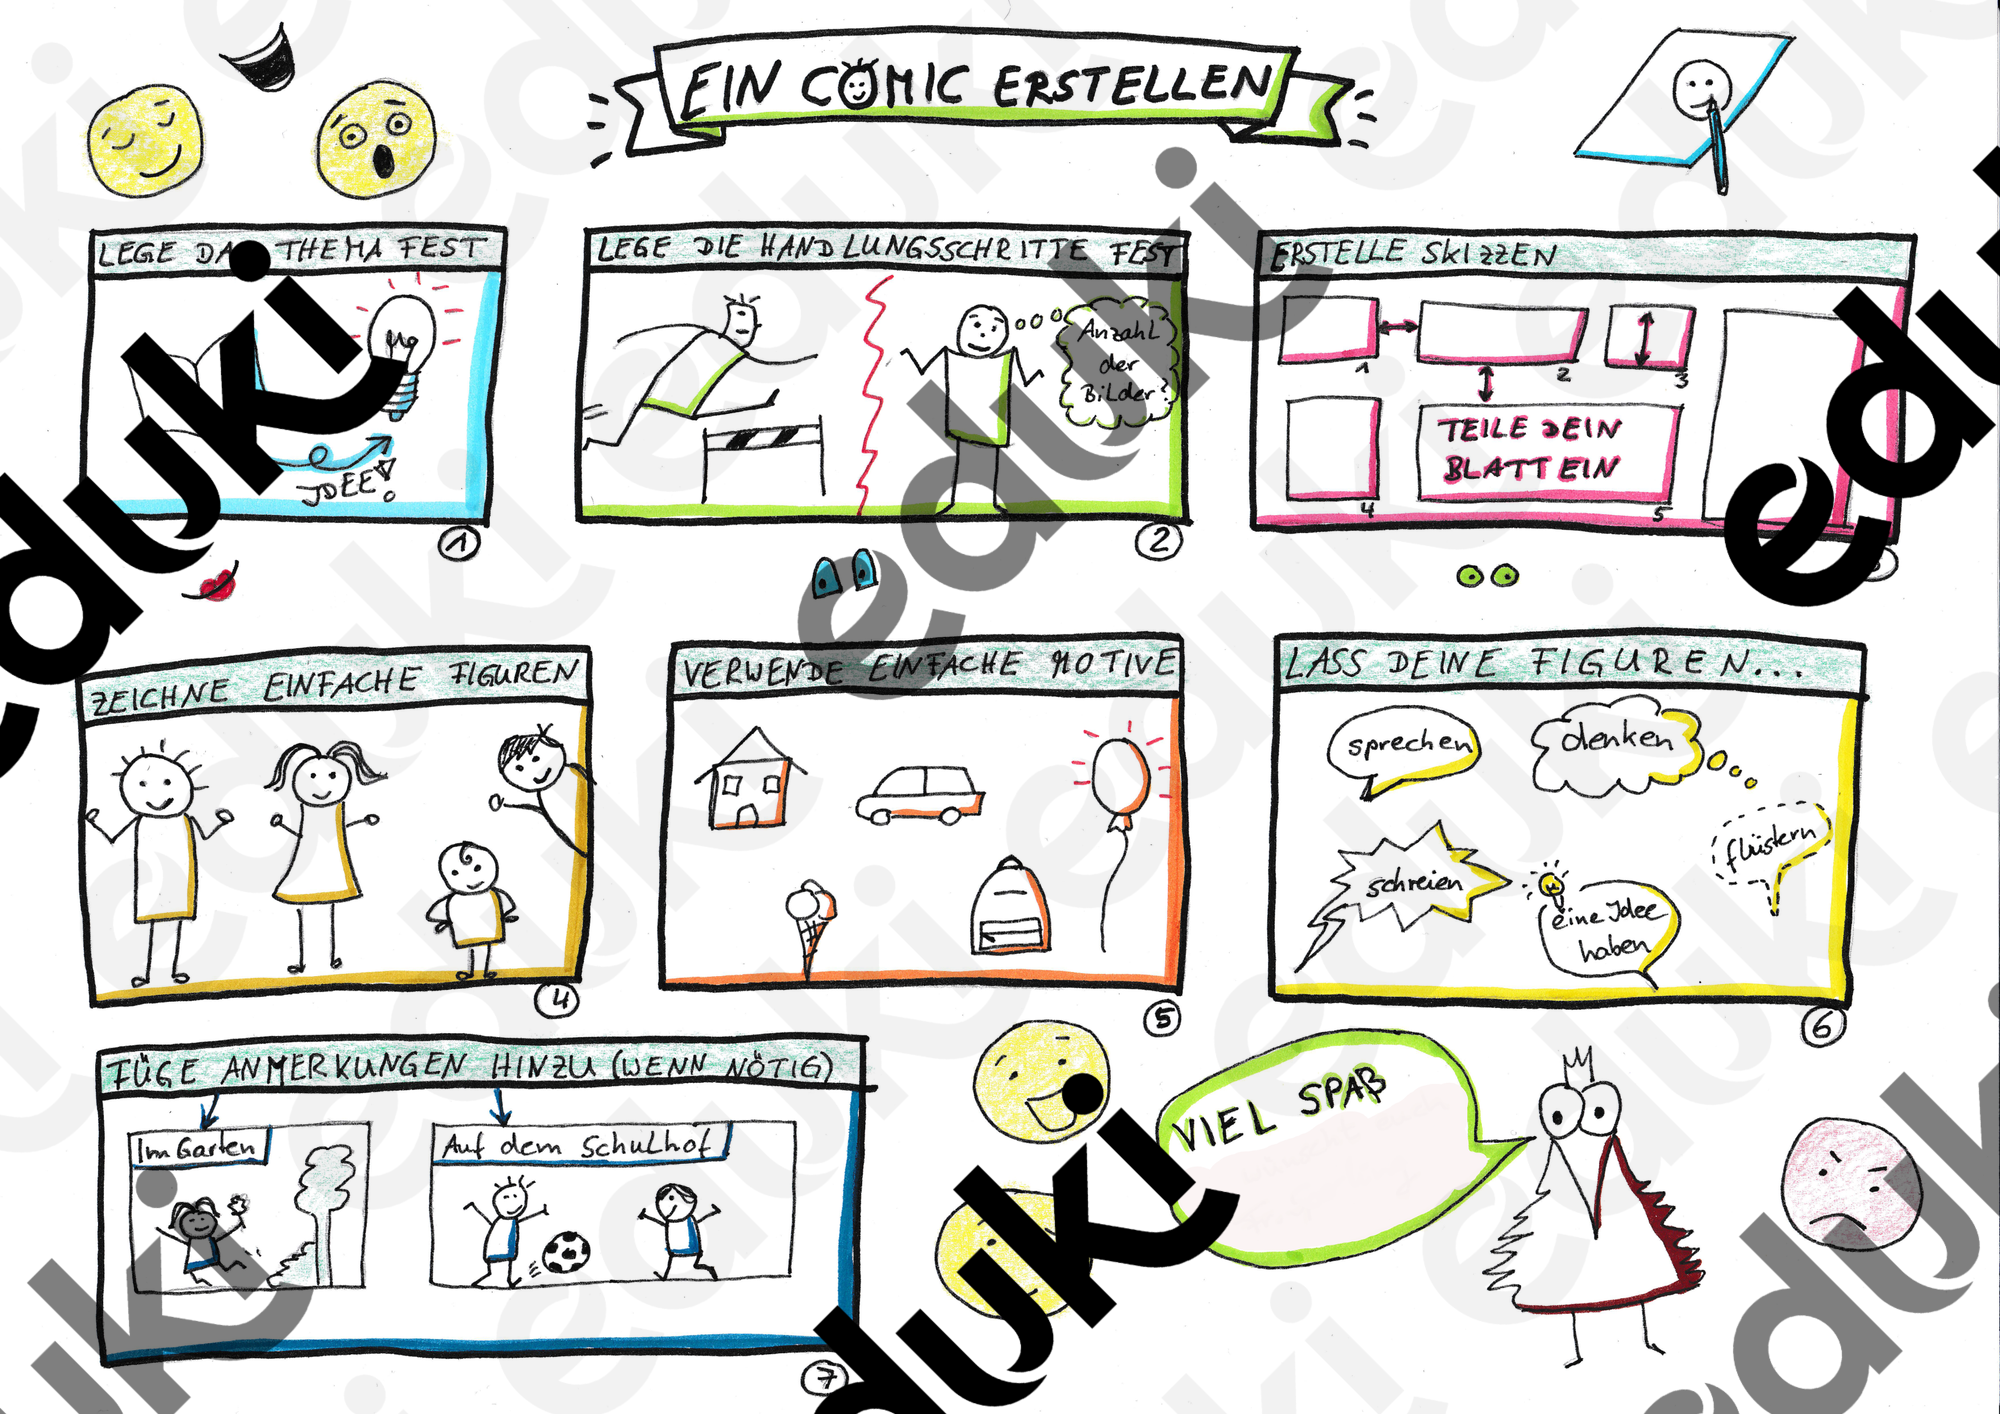 EIN COMIC ERSTELLEN
LEGE DAS THEMA FEST
IDEE!
1
LEGE DIE HANDLUNGSSCHRITTE FEST
Anzahl
der
Bilder?
2
ERSTELLE SKIZZEN
1
2
3
4
TEILE DEIN
BLATT EIN
5
ZEICHNE EINFACHE FIGUREN
4
VERWENDE EINFACHE MOTIVE
5
LASS DEINE FIGUREN...
sprechen
denken
flüstern
schreien
eine Idee
haben
6
FÜGE ANMERKUNGEN HINZU (WENN NÖTIG)
Im Garten
Auf dem Schulhof
7
VIEL SPAß
eduki
eduki
eduki
eduki
eduki
eduki